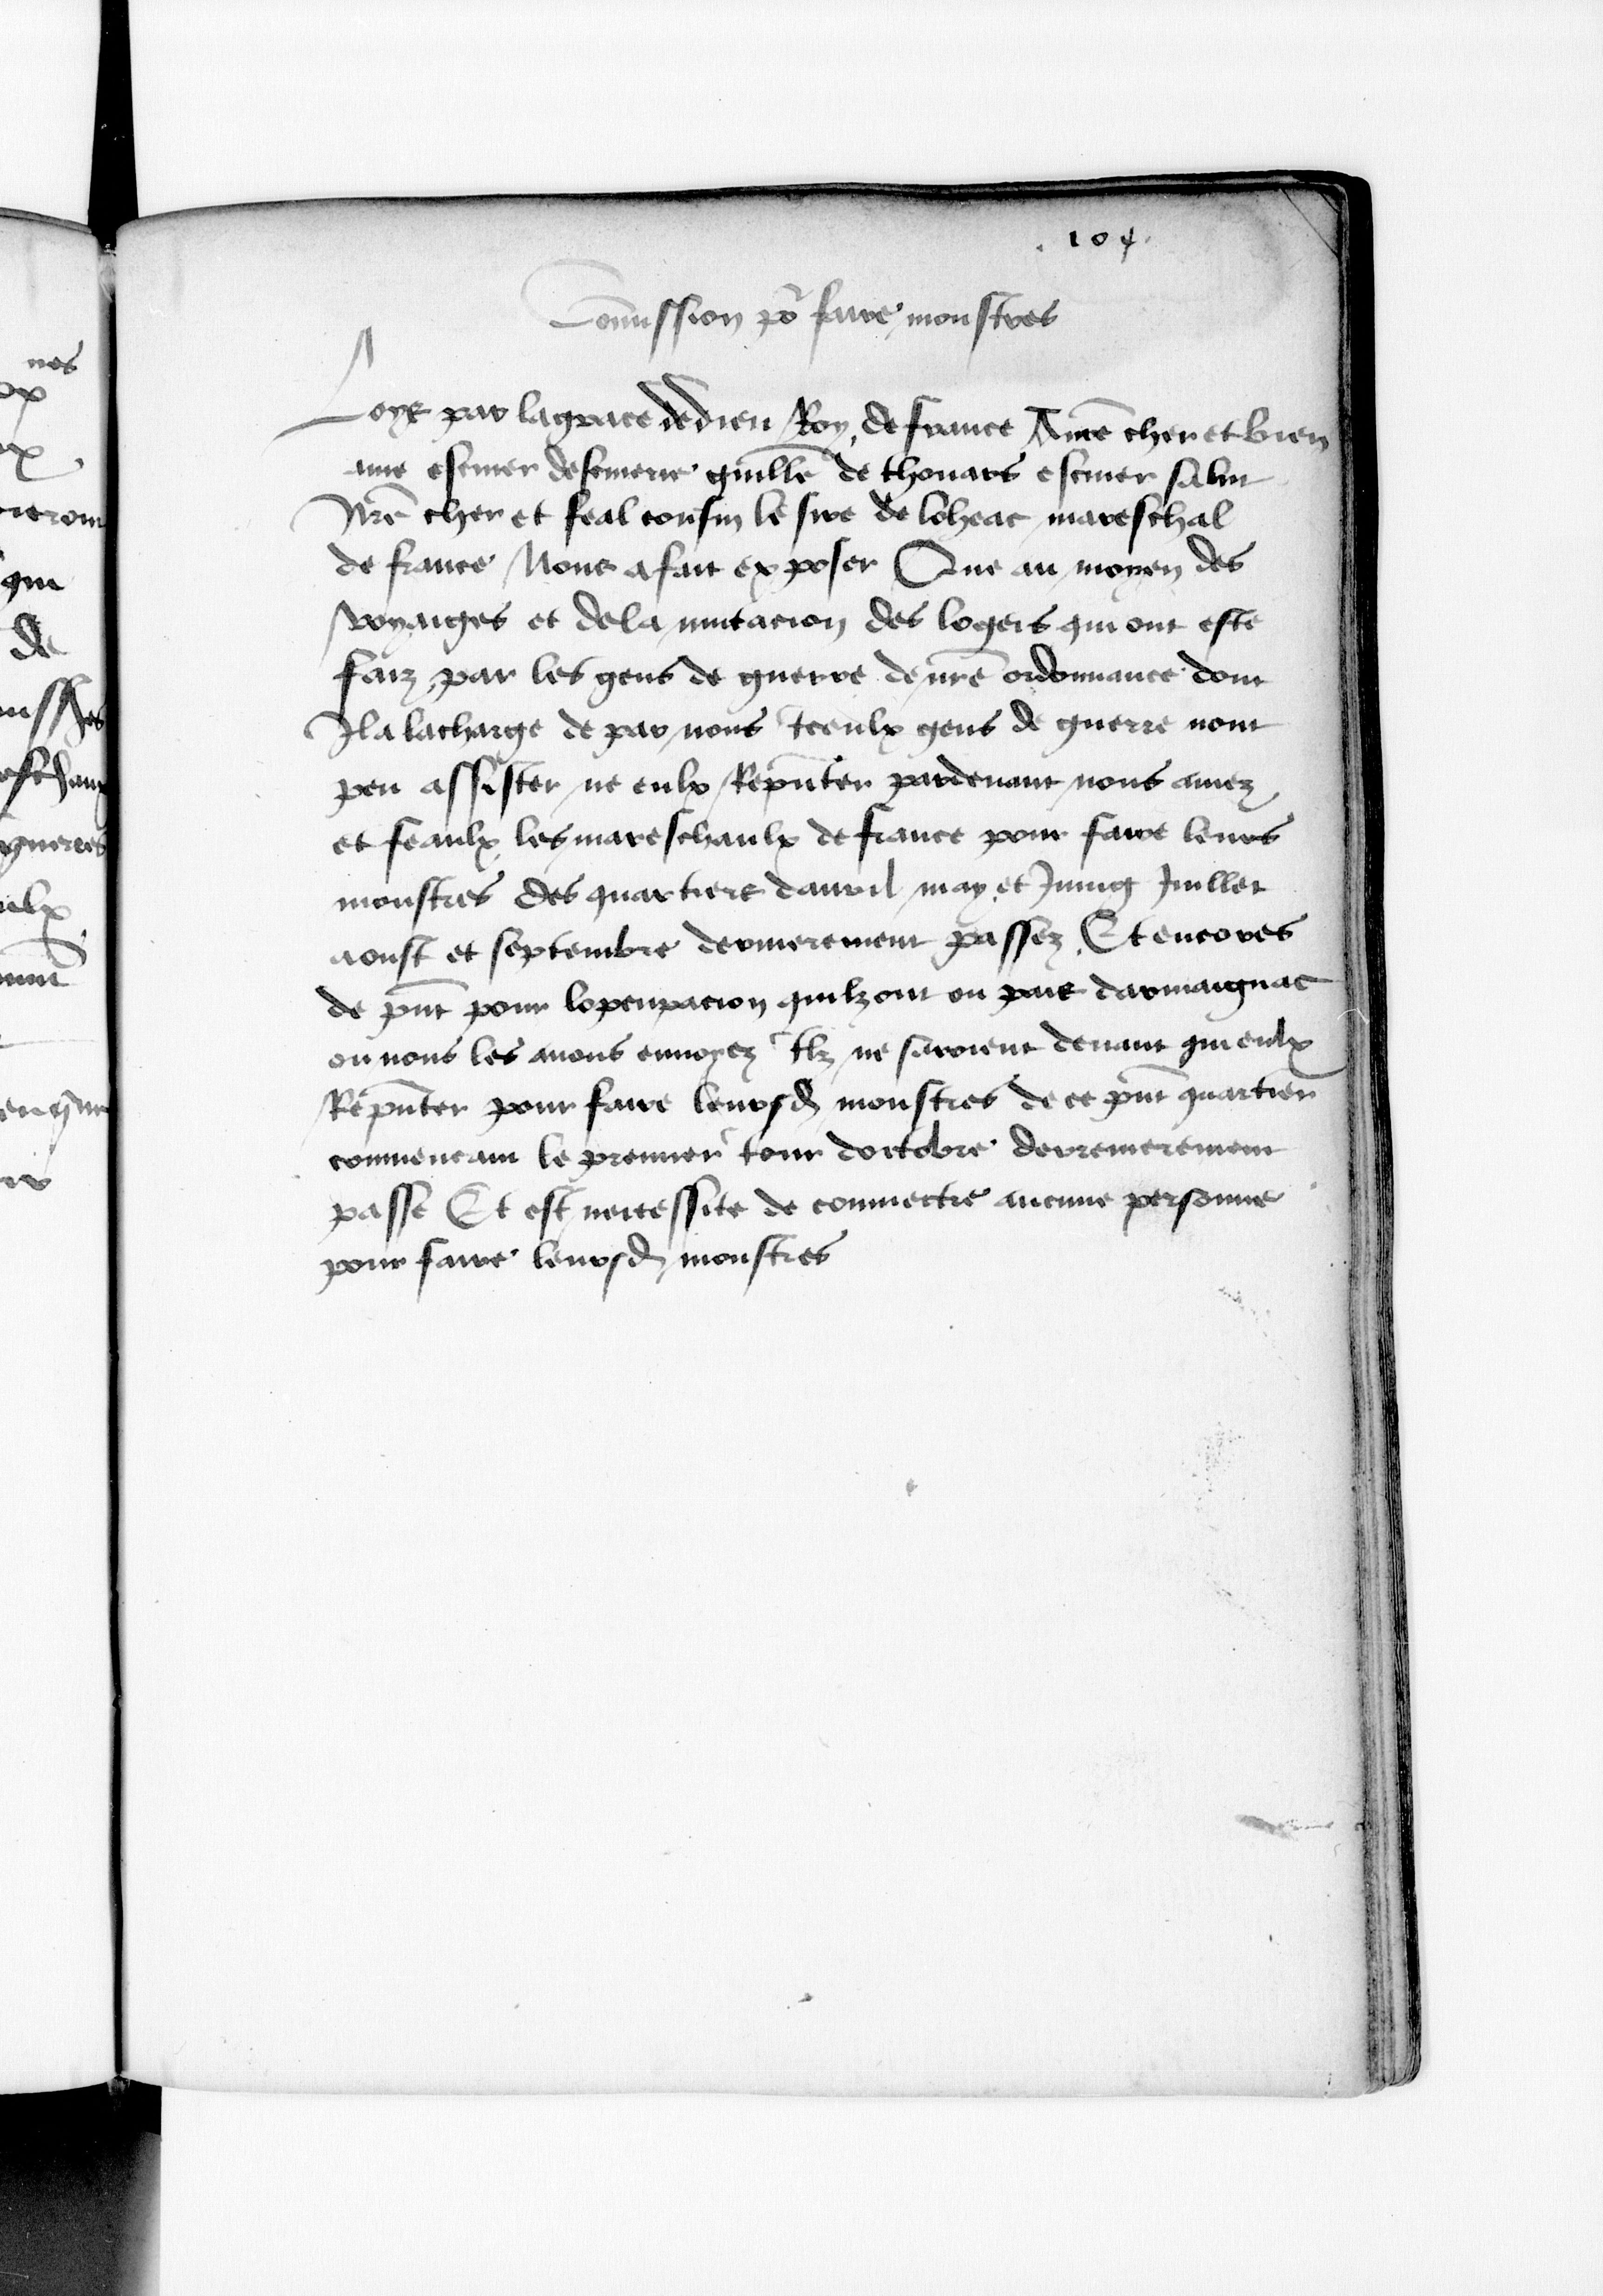 .104.
Co͞mission po͛ faire monstres
Loys par lagrace dedieu Roy de france A n͞re cher et bien
ame escuier descuierie guill͞e de thouars escuier salut
N͞re cher et feal cousin le sire de loheac mareschal
de france Nous a fait exposer Que au moyen des
voyaiges et dela mutacion des logeis qui ont este
faiz par les gens de guerre de n͞re ordonnance dont
Il a lacharge de par nous Iceulx gens de guerre nont
peu assister ne eulx Rep͞nter pardeuant nous amez
et feaulx les mareschaulx de france pour faire leurs
monstres des quartiers dauril may et Juing Juillet
aoust et septembre dernierement passez Et encores
de p͞nt pour lopcupacion quilz ont ou pais darmaignac
ou nous les auons enuoyez Ilz ne sauroient deuant qui eulx
Rep͞nter pour faire leursd monstres de ce p͞nt quartier
commencant le premier Iour doctobre derrenierement
passe Et est neccessite de commectre aucune personne
pour faire leursd monstres